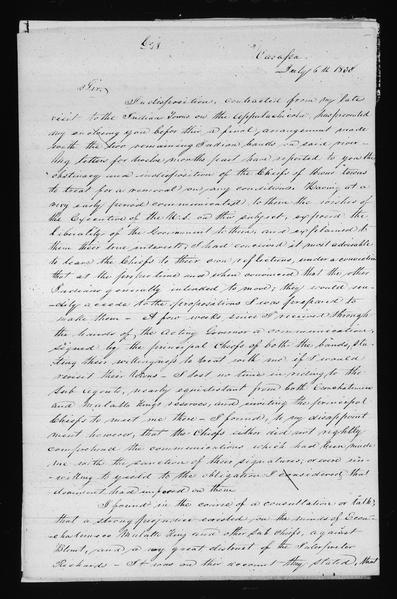 Casafea.
July 6th 1833
Sir,
Indisposition, contracted from my late
visit to the Indian Towns on the Appalachicola has prevented
my sending you before this a final arrangement made
with the two remaining Indian bands on said river
My letters for twelve months past have reported to you the
obstinacy and indisposition of the Chiefs of those towns
to treat for a removal on any conditions. Having at a
very early period communicated to them the wishes of
the Executive of the U.S. on this subject, exposed the
liberality of the Government to them, and explained to
them their true interests, I had conceived it most advisable
to leave the Chiefs to their own reflections, under a conviction
that at the proper time and when convinced that the other
Indians generally intended to move; they would rea-
dily accede to the propositions I was prepared to
make them - A few weeks since I received through
the hands of the Acting Governor a communication,
signed by the principal Chiefs of both the bands, sta-
ting their willingness to treat with me if I would
revisit their towns - I lost no time in riding to the
Sub Agents, nearly equidistant from both Econchatimico
and Mulatto Kings reserves, and inviting the principal
Chiefs to meet me there - I found, to my disappoint
ment however, that the Chiefs either did not rightly
comprehend the communications which had been made
me with the sanction of their signatures; or were un-
willing to yield to the obligation I considered that
document had imposed on them
I found in the course of a consultation or talk,
that a strong prejudice existed on the minds of Econ-
chatimico Mulatto King and other sub chiefs, against
Blunt, and a very great distrust of the Interpreter
Richards - It was on their account they stated, that